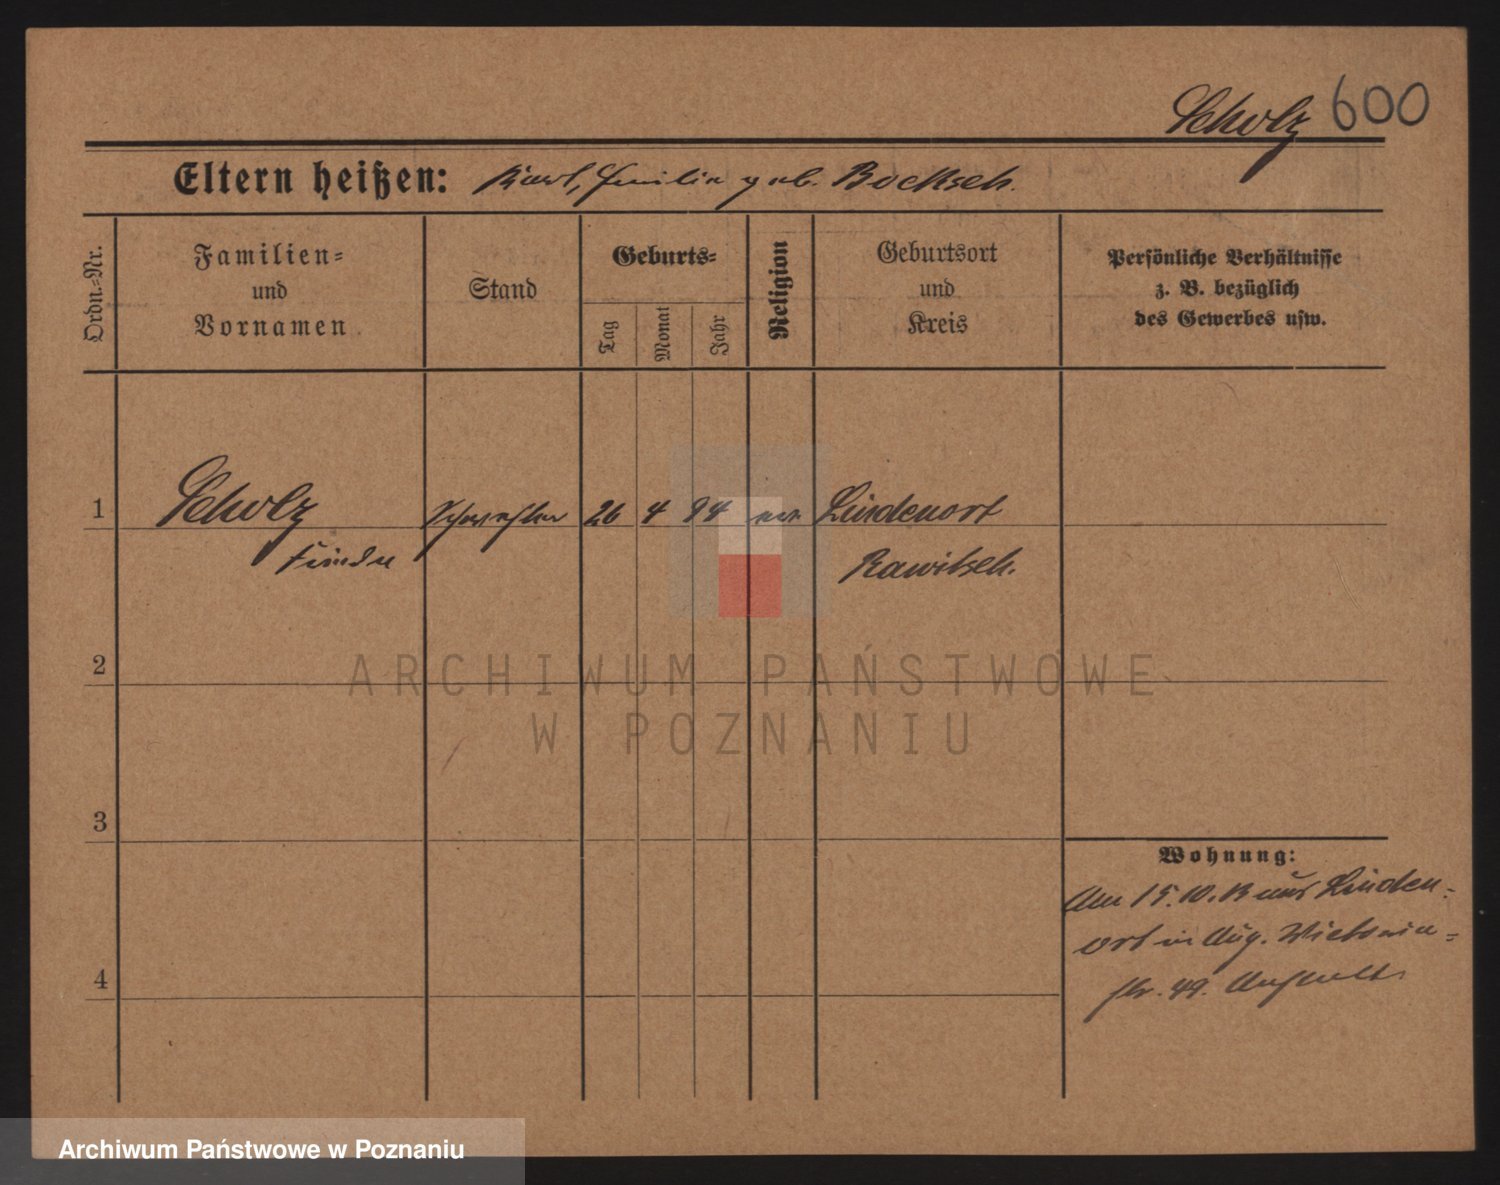 Scholz 600
Eltern heißen: Karl, Emilie geb. Bocksch.
Ordn.-Nr.
Familien-
und
Vornamen
Stand
Geburts-
Tag
Monat
Jahr
Religion
Geburtsort
und
Kreis
Persönliche Verhältnisse
z. B. bezüglich
des Gewerbes usw.
1 Scholz Schwester 26 4 94 Lindenort
Rawitsch.
2
ARCHIWUM PAŃSTWOWE
W POZNANIU
3
Wohnung:
Am 15.10. aus Linden-
ort in Aug. Victoria-
str. 49. Anstalt
4
Archiwum Państwowe w Poznaniu